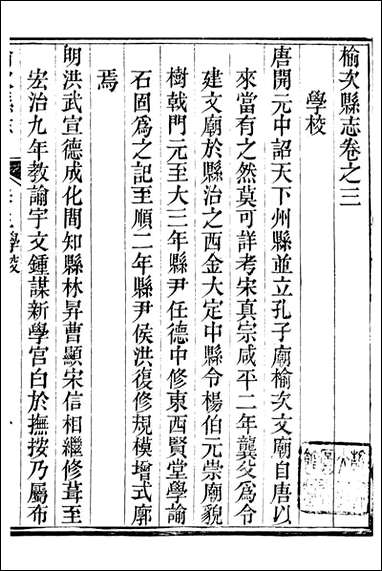 榆次縣志卷之三
學校
唐開元中詔天下州縣並立孔子廟榆次文廟自唐以
來當有之然莫可詳考宋真宗咸平二年龔父爲令
建文廟於縣治之西金大定中縣令楊伯元崇廟貌
樹戟門元至大三年縣尹任德中修東西賢堂學諭
石固爲之記至順二年縣尹侯洪復修規模增式廓
焉
明洪武宣德成化間知縣林昇曹顯宋信相繼修葺至
宏治九年教諭宇文鍾謀新學宮白於撫按乃屬布